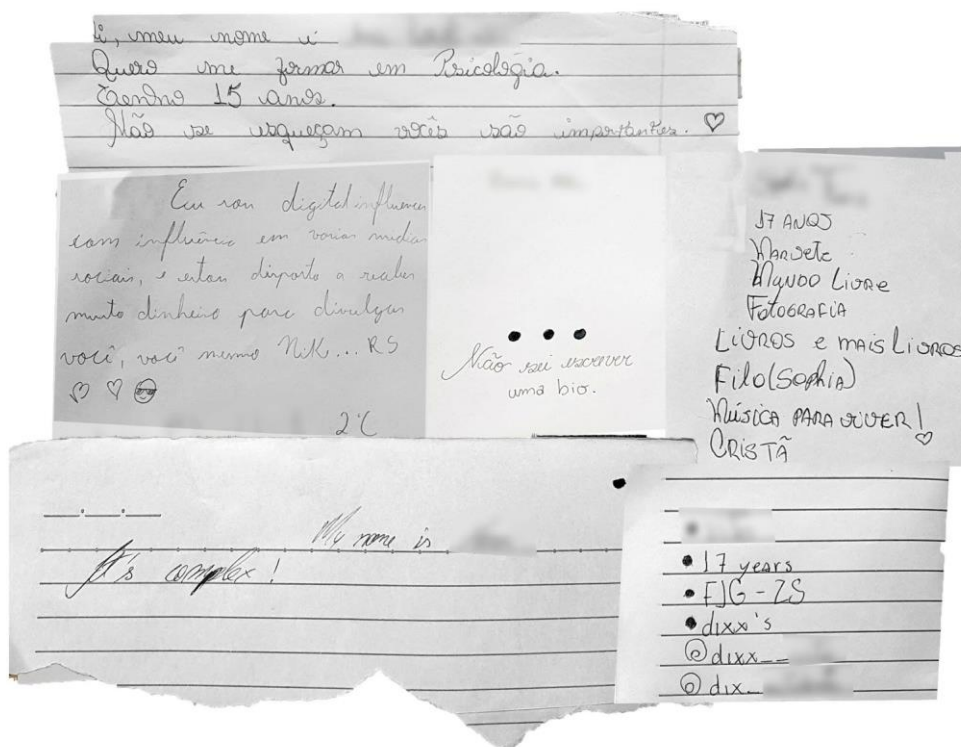 i, meu nome é
Quero me formar em Psicologia.
Tenho 15 anos.
Não se esqueçam vocês são importantes. ♡
Eu sou digital influencer
com influência em varias medias
sociais, e estou disposto a receber
muito dinheiro para divulgar
você, você mesmo NiK... RS
2°C
Não sei escrever
uma bio.
17 ANOS
MUNDO LiVRe
FOTOGRAFIA
LiVROS e mAiS LiVROS
Filo(Sophia)
MÚSICA PARA VIVER! ♡
CRISTÃ
My name is
It's complex!
• 17 years
• FJG-ZS
• dixx's
@dixx__
@dix_